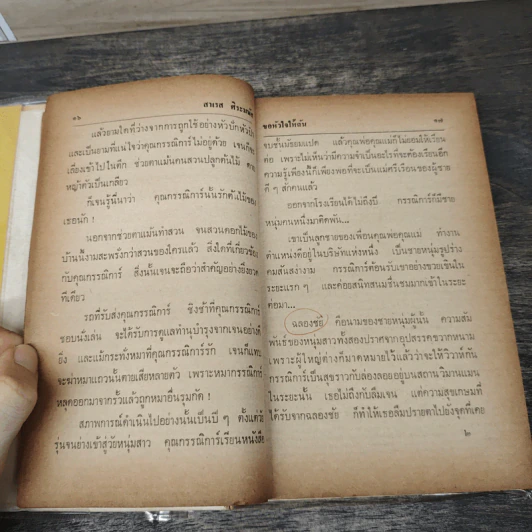 ๑๖
สาเรส ศิระมนัส
แล้วยามใดที่ว่างจากการถูกใช้อย่างหัวปักหัวปำ
และเป็นยามที่แน่ใจว่าคุณกรรณิการ์ไม่อยู่ด้วย เจนก็จะ
เลี่ยงเข้าไปในตึก ช่วยตาแม้นคนสวนปลูกต้นไม้ ดาย
หญ้าตัวเป็นเกลียว
ก็เจนรู้นี่นาว่า คุณกรรณิการ์นั้นรักต้นไม้ของ
เธอนัก !
นอกจากช่วยตาแม้นทำสวน จนสวนดอกไม้ของ
บ้านนี้งามสะพรั่งกว่าสวนของใครแล้ว สิ่งใดที่เกี่ยวข้อง
กับคุณกรรณิการ์ สิ่งนั้นเจนจะถือว่าสำคัญอย่างยิ่งยวด
ทีเดียว
รถที่รับส่งคุณกรรณิการ์ ชิงช้าที่คุณกรรณิการ์
ชอบนั่งเล่น จะได้รับการดูแลทำนุบำรุงจากเจนอย่างดี
ยิ่ง และแม้กระทั่งหมาที่คุณกรรณิการ์รัก เจนก็แทบ
จะฆ่าหมาแถวนั้นตายเสียหลายตัว เพราะหมากรรณิการ์
หลุดออกมาจากรั้วแล้วถูกหมาอื่นรุมกัด !
สภาพการณ์ดำเนินไปอย่างนั้นเป็นปี ๆ ตั้งแต่วัย
รุ่นจนย่างเข้าสู่วัยหนุ่มสาว คุณกรรณิการ์เรียนหนังสือ
ขอหัวใจให้ฉัน
๑๗
จบชั้นมัธยมแปด แล้วคุณพ่อคุณแม่ก็ไม่ยอมให้เรียน
ต่อ เพราะไม่เห็นว่ามีความจำเป็นอะไรที่จะต้องเรียนอีก
ความรู้เพียงนี้ก็เพียงพอที่จะเป็นแม่ศรีเรือนของผู้ชาย
ดี ๆ สักคนแล้ว
ออกจากโรงเรียนได้ไม่ถึงปี กรรณิการ์ก็มีชาย
หนุ่มคนหนึ่งมาติดพัน...
เขาเป็นลูกชายของเพื่อนคุณพ่อคุณแม่ ทำงาน
ตำแหน่งดีอยู่ในบริษัทแห่งหนึ่ง เป็นชายหนุ่มรูปร่าง
คมสันสง่างาม กรรณิการ์ต้อนรับเขาอย่างขวยเขินใน
ระยะแรก ๆ และค่อยสนิทสนมรื่นรมมากเข้าในระยะ
ต่อมา...
ฉลองชัย คือนามของชายหนุ่มผู้นั้น ความสัม
พันธ์ของหนุ่มสาวทั้งสองปราศจากอุปสรรคขวากหนาม
เพราะผู้ใหญ่ต่างก็มาดหมายไว้แล้วว่าจะให้วิวาห์กัน
กรรณิการ์เป็นสุขราวกับล่องลอยอยู่บนสถานวิมานแมน
ในระยะนั้น เธอไม่ถึงกับลืมเจน แต่ความสุขเกษมที่
ได้รับจากฉลองชัย ก็ทำให้เธอลืมปรายตาไปยังจุดที่เคย
๒